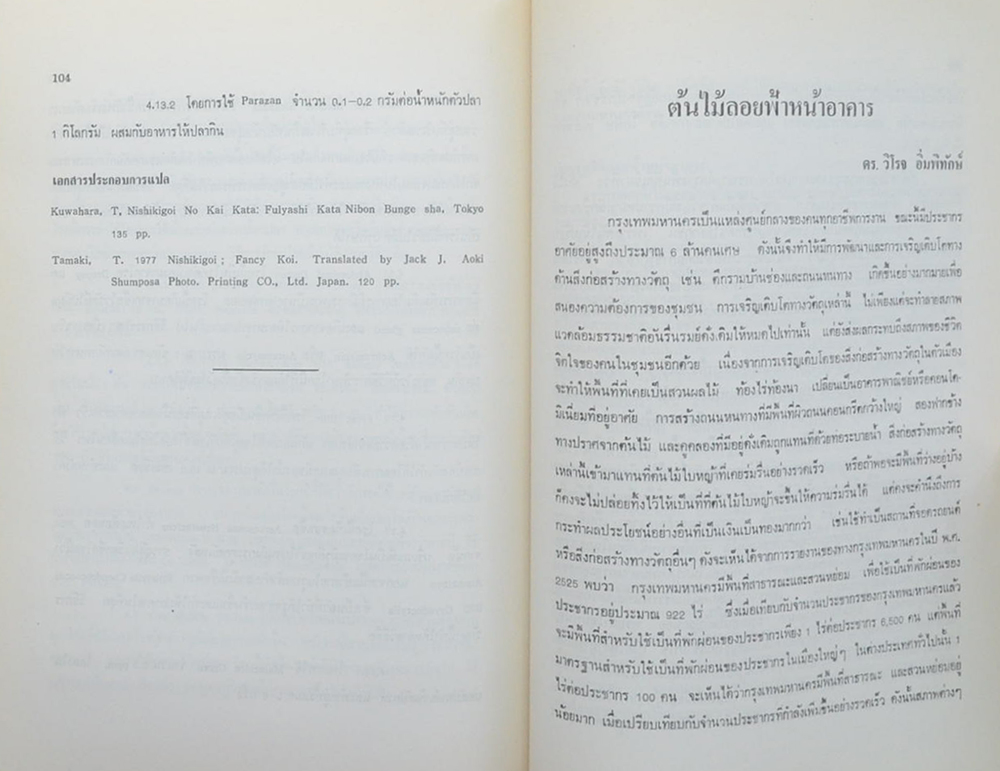 104
4.13.2 โดยการใช้ Parazan จำนวน 0.1-0.2 กรัมต่อน้ำหนักตัวปลา
1 กิโลกรัม ผสมกับอาหารให้ปลากิน
เอกสารประกอบการแปล
Kuwahara, T, Nishikigoi No Kai Kata: Fulyashi Kata Nibon Bunge sha, Tokyo
135 pp.
Tamaki, T. 1977 Nishikigoi ; Fancy Koi. Translated by Jack J. Aoki
Shumposa Photo. Printing CO., Ltd. Japan. 120 pp.
ต้นไม้ลอยฟ้าหน้าอาคาร
ดร. วิโรจ อิ่มพิทักษ์
กรุงเทพมหานครเป็นแหล่งศูนย์กลางของคนทุกอาชีพการงาน ขณะนี้มีประชากร
อาศัยอยู่สูงถึงประมาณ 6 ล้านคนเศษ ดังนั้นจึงทำให้มีการพัฒนาและการเจริญเติบโตทาง
ด้านสิ่งก่อสร้างทางวัตถุ เช่น ตึกรามบ้านช่องและถนนหนทาง เกิดขึ้นอย่างมากมายเพื่อ
สนองความต้องการของชุมชน การเจริญเติบโตทางวัตถุเหล่านี้ ไม่เพียงแต่จะทำลายสภาพ
แวดล้อมธรรมชาติอันรื่นรมย์ดั่งเดิมให้หมดไปเท่านั้น แต่ยังส่งผลกระทบถึงสภาพของชีวิต
จิตใจของคนในชุมชนอีกด้วย เนื่องจากการเจริญเติบโตของสิ่งก่อสร้างทางวัตถุในตัวเมือง
จะทำให้พื้นที่ที่เคยเป็นสวนผลไม้ ท้องไร่ท้องนา เปลี่ยนเป็นอาคารพาณิชย์หรือคอนโด-
มิเนี่ยมที่อยู่อาศัย การสร้างถนนหนทางที่มีพื้นที่ผิวถนนคอนกรีตกว้างใหญ่ สองฟากข้าง
ทางปราศจากต้นไม้ และคูคลองที่มีอยู่ดั่งเดิมถูกแทนที่ด้วยท่อระบายน้ำ สิ่งก่อสร้างทางวัตถุ
เหล่านี้เข้ามาแทนที่ต้นไม้ใบหญ้าที่เคยร่มรื่นอย่างรวดเร็ว หรือถ้าพอจะมีพื้นที่ว่างอยู่บ้าง
ก็คงจะไม่ปล่อยทิ้งไว้ให้เป็นที่ที่ต้นไม้ใบหญ้าจะขึ้นให้ความร่มรื่นได้ แต่คงจะคำนึงถึงการ
กระทำผลประโยชน์อย่างอื่นที่เป็นเงินเป็นทองมากกว่า เช่นใช้ทำเป็นสถานที่จอดรถยนต์
หรือสิ่งก่อสร้างทางวัตถุอื่นๆ ดังจะเห็นได้จากการรายงานของทางกรุงเทพมหานครในปี พ.ศ.
2525 พบว่า กรุงเทพมหานครมีพื้นที่สาธารณะและสวนหย่อม เพื่อใช้เป็นที่พักผ่อนของ
ประชากรอยู่ประมาณ 922 ไร่ ซึ่งเมื่อเทียบกับจำนวนประชากรของกรุงเทพมหานครแล้ว
จะมีพื้นที่สำหรับใช้เป็นที่พักผ่อนของประชากรเพียง 1 ไร่ต่อประชากร 6,500 คน แต่พื้นที่
มาตรฐานสำหรับใช้เป็นที่พักผ่อนของประชากรในเมืองใหญ่ๆ ในต่างประเทศทั่วไปนั้น 1
ไร่ต่อประชากร 100 คน จะเห็นได้ว่ากรุงเทพมหานครมีพื้นที่สาธารณะ และสวนหย่อมอยู่
น้อยมาก เมื่อเปรียบเทียบกับจำนวนประชากรที่กำลังเพิ่มขึ้นอย่างรวดเร็ว ดังนั้นสภาพต่างๆ